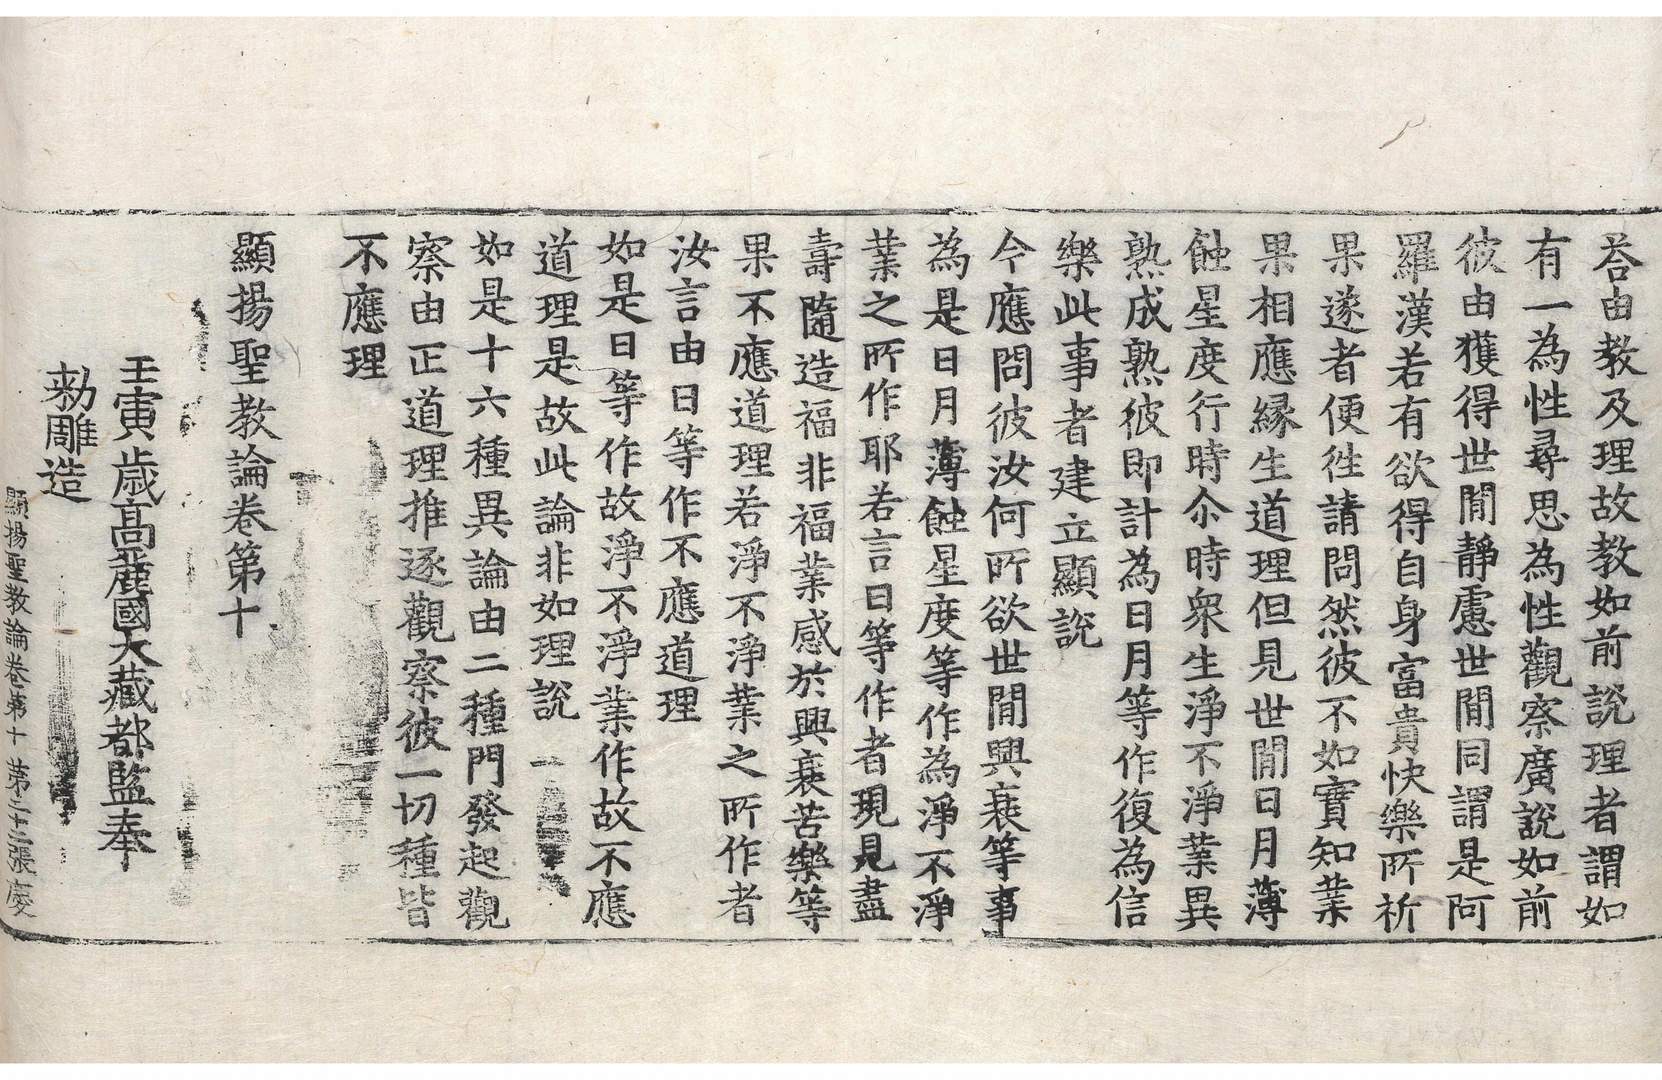 荅由教及理故教如前說理者謂如
有一為性尋思為性觀察廣說如前
彼由獲得世閒靜慮世閒同謂是阿
羅漢若有欲得自身富貴快樂所祈
果遂者便徃請問然彼不如實知業
果相應緣生道理但見世閒日月薄
蝕星度行時尒時衆生淨不淨業異
熟成熟彼即計為日月等作復為信
樂此事者建立顯說
今應問彼汝何所欲世閒興衰等事
為是日月薄蝕星度等作為淨不淨
業之所作耶若言日等作者現見盡
壽隨造福非福業感於興衰苦樂等
果不應道理若淨不淨業之所作者
汝言由日等作不應道理
如是日等作故淨不淨業作故不應
道理是故此論非如理說
如是十六種異論由二種門發起觀
察由正道理推逐觀察彼一切種皆
不應理
顯揚聖教論卷第十
壬寅歲高麗國大藏都監奉
勑雕造
顯揚聖教論卷第十 第二十二張 慶